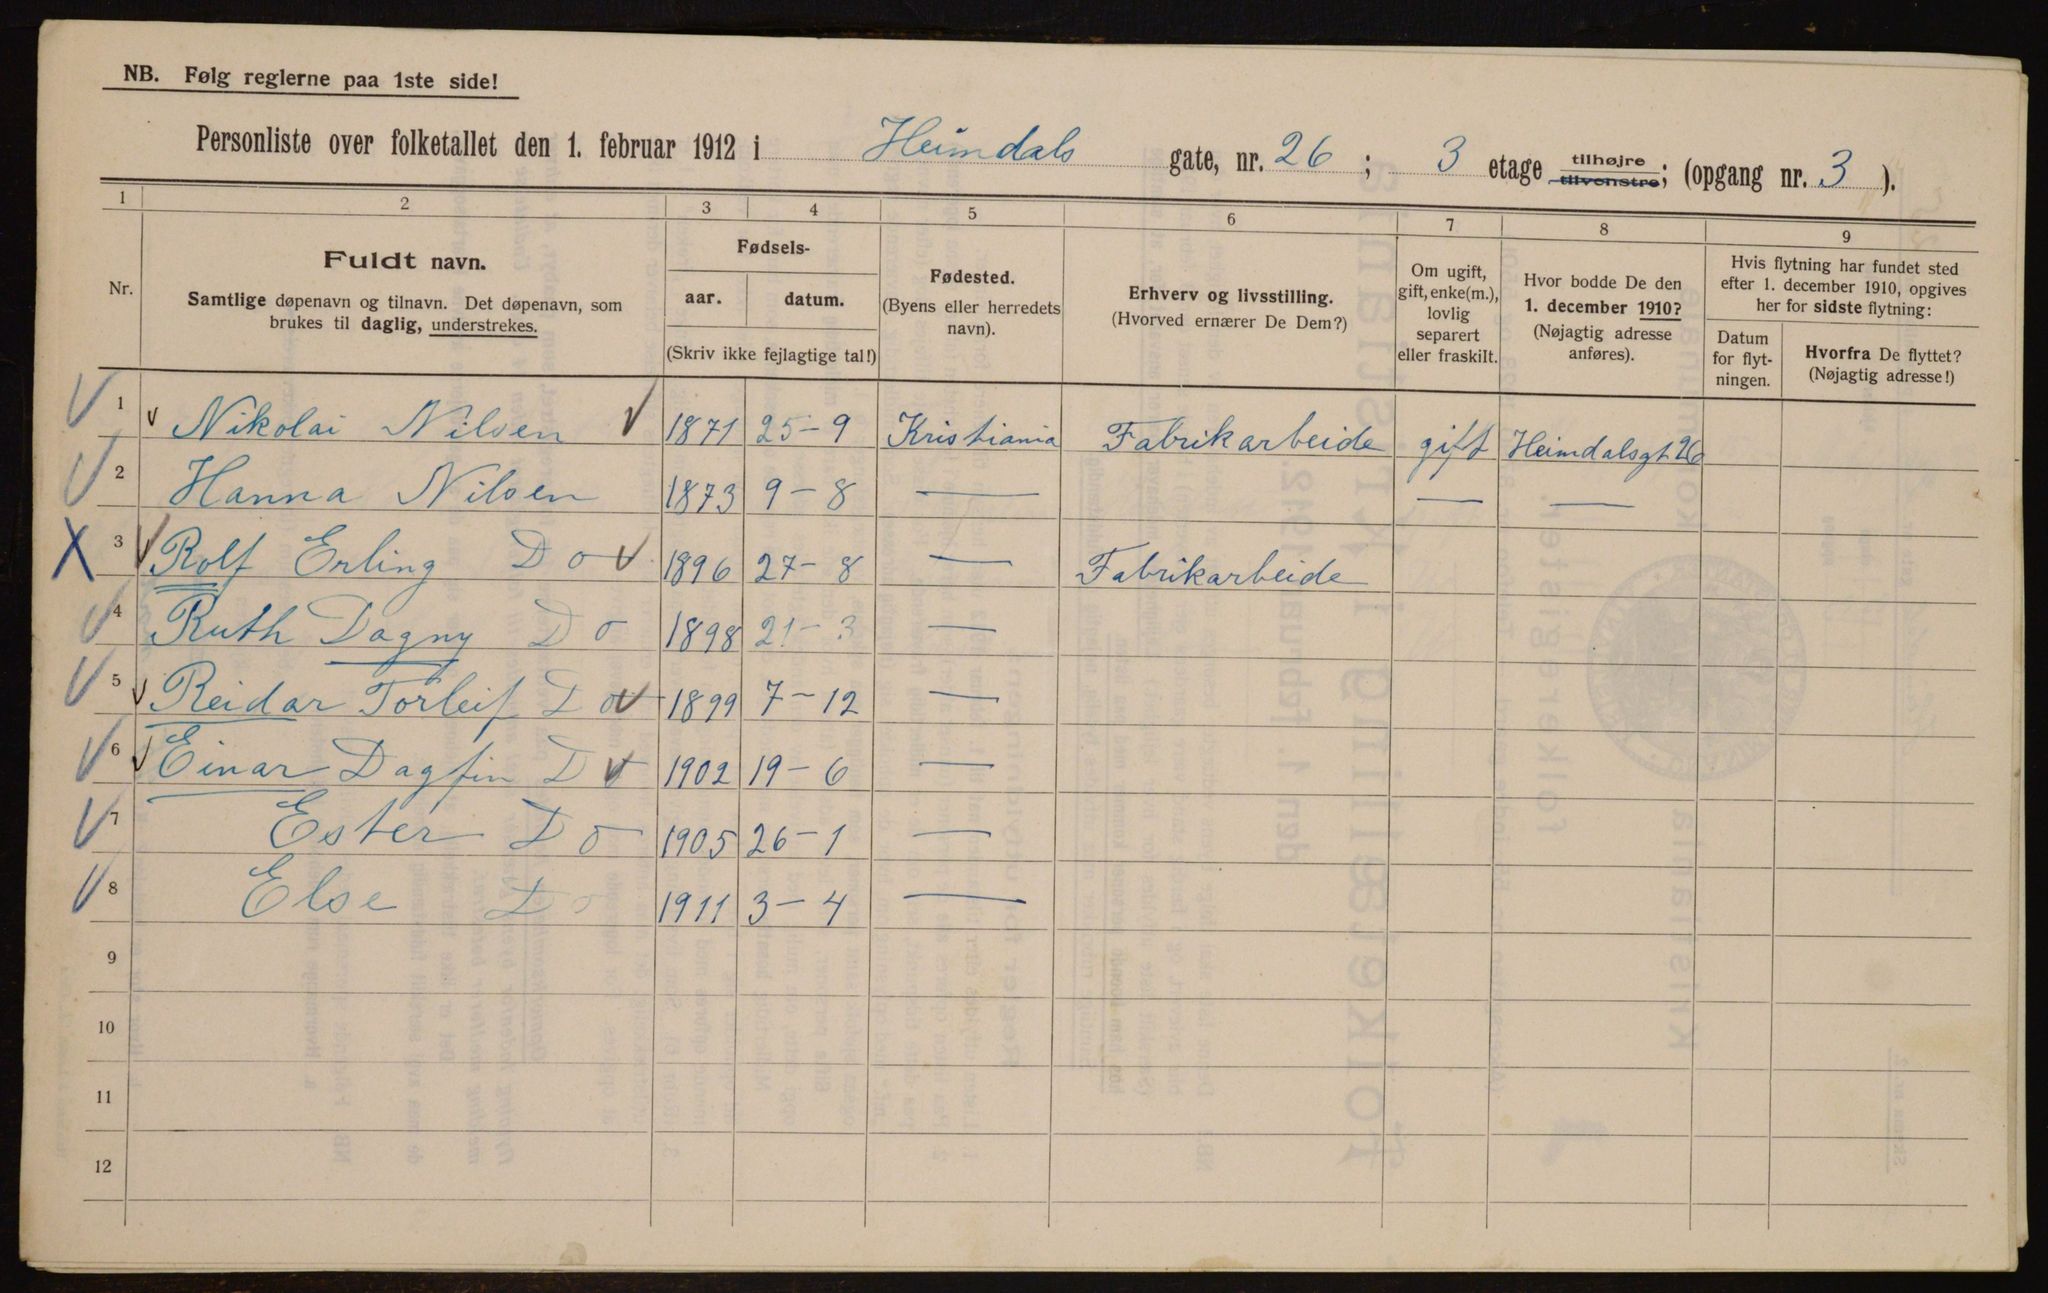 NB. Følg reglerne paa 1ste side!
Personliste over folketallet den 1. februar 1912 i Heimdals gate, nr. 26 ; 3 etage tilhøjre tilvenstre; (opgang nr. 3 ).
1 2 3 4 5 6 7 8 9
Nr.
Fuldt navn.
Samtlige døpenavn og tilnavn. Det døpenavn, som
brukes til daglig, understrekes.
Fødsels-
aar. datum.
(Skriv ikke fejlagtige tal!)
Fødested.
(Byens eller herredets
navn).
Erhverv og livsstilling.
(Hvorved ernærer De Dem?)
Om ugift,
gift, enke(m.),
lovlig
separert
eller fraskilt.
Hvor bodde De den
1. december 1910?
(Nøjagtig adresse
anføres).
Hvis flytning har fundet sted
efter 1. december 1910, opgives
her for sidste flytning:
Datum
for flyt-
ningen.
Hvorfra De flyttet?
(Nøjagtig adresse!)
1 Nikolai Nilsen 1871 25-9 Kristiania Fabrikarbeide gift Heimdalsgt 26
2 Hanna Nilsen 1873 9-8 — — —
3 Rolf Erling Do 1896 27-8 — Fabrikarbeide
4 Ruth Dagny Do 1898 21-3 —
5 Reidar Torleif Do 1899 7-12 —
6 Einar Dagfin Do 1902 19-6 —
7 Ester Do 1905 26-1 —
8 Else Do 1911 3-4 —
9
10
11
12